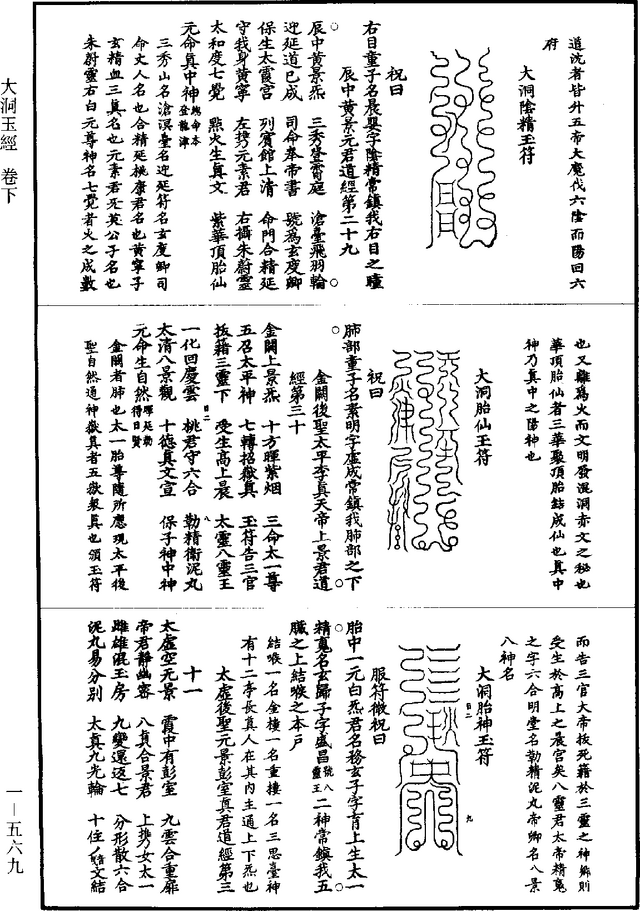 大洞玉經 卷下
一—五六九
道沈者皆升五帝大魔伐六陰而陽回六
府
大洞陰精玉符
祝曰
右目童子名晨嬰字陰精常鎮我右目之瞳
辰中黃景元君道經第二十九
辰中黃景炁 三秀登霄庭 滄臺飛羽輪
迎延道已成 司命奉帝書 號爲玄度卿
保生太霞宮 列賓館上清 命門合精延
守我身黃寧 左攜元素君 右攝朱蔚靈
太和度七覺 㸃火生真文 紫華頂胎仙
元命真中神
三秀山名滄溟臺名迎延符名玄度卿司
命丈人名也合精延桃康君名也黃寧子
玄精血三真名也元素君死英公子名也
朱蔚靈右白元尊神名七覺者火之成數
也又離爲火而文明發混洞赤文之秘也
華頂胎仙者三華聚頂胎結成仙也真中
神乃真中之陽神也
大洞胎仙玉符
祝曰
肺部童子名素明字盧成常鎮我肺部之下
金闕後聖太平李真天帝上景君道
經第三十
金闕上景炁 十方暉紫烟 三命太一尊
五召太平神 七轉招獄真 玉符告三官
拔籍三靈下 受生高上晨 太靈八靈王
一化回慶雲 桃君守六合 勒精衛泥丸
太清八景觀 十德真文宣 保子神中神
元命生自然
金闕者肺也太一胎尊隨所應現太平後
聖自然通神嶽真者五嶽衆真也領玉符
而告三官大帝拔死籍於三靈之神鄉則
受生於高上之晨宮矣八靈君太帝精魂
之字六合明堂名勒精泥丸帝卿名八景
八神名
大洞胎神玉符
服符微祝曰
胎中一元白炁君名務玄子字育上生太一
精魂名玄歸子字盛昌 二神常鎮我五
臟之上結喉之本戶
結喉一名金樓一名重樓一名三思臺神
有十二亭長真人在其內主通上下炁也
太虛後聖元景彭室真君道經第三
十一
太虛空无景 霞中有彭室 九雲合重扉
帝君靜幽寥 八真合景君 上攜女太一
雌雄混玉房 九變還迈七 分形散六合
泥丸易分別 太真九光輪 十住文結